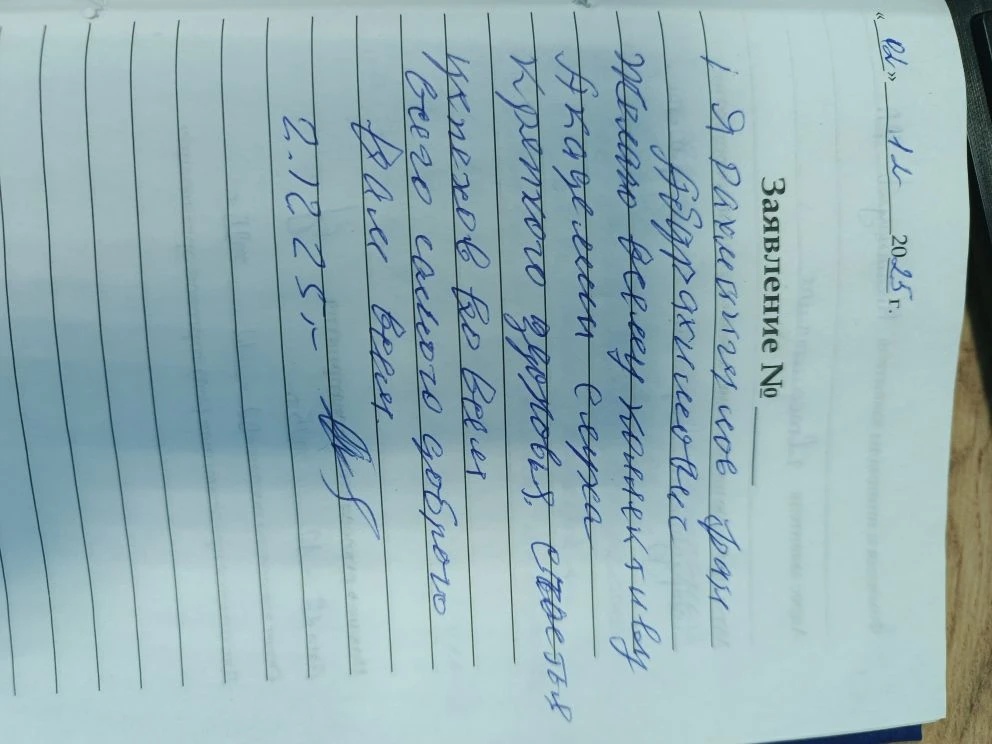 « 02 » 12 2025 г.
Заявление № ____
Я Рахимгулов Фан
Абдрахимович
Желаю всему коллективу
Академии Слуха
Крепкого здоровья, счастья
успехов во всем
всего самого доброго
Вам всем.
2.12 25 г